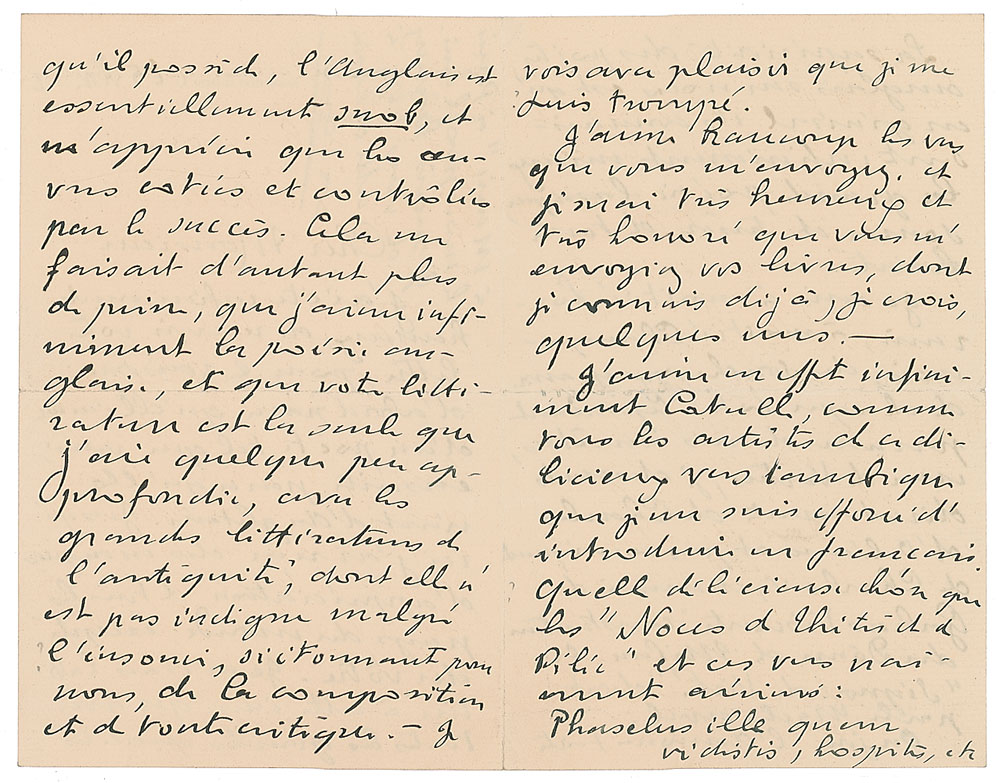 qu'il possède, l'Anglais est
essentiellement snob, et
n'apprécie que les œu-
vres cotées et contrôlées
par le succès. Cela me
faisait d'autant plus
de peine, que j'aime infi-
niment la poésie an-
glaise, et que votre litté-
rature est la seule que
j'aie quelque peu ap-
profondie, avec les
grandes littératures de
l'antiquité, dont elle n'
est pas indigne malgré
l'insouci, si étonnant pour
nous, de la composition
et de toute critique. – Je
vois avec plaisir que je me
suis trompé.
J'aime beaucoup les vers
que vous m'envoyez, et
je serai très heureux et
très honoré que vous m'
envoyiez vos livres, dont
je connais déjà, je crois,
quelques uns. —
J'aime en effet infini-
ment Catulle, comme
tous les artistes de ce dé-
licieux vers iambique
que je me suis efforcé d'
introduire en français.
Quelle délicieuse chose que
les "Noces de Thétis et de
Pélée" et ces vers vrai-
ment aériens :
Phaselus ille quem
vidistis, hospites, etc